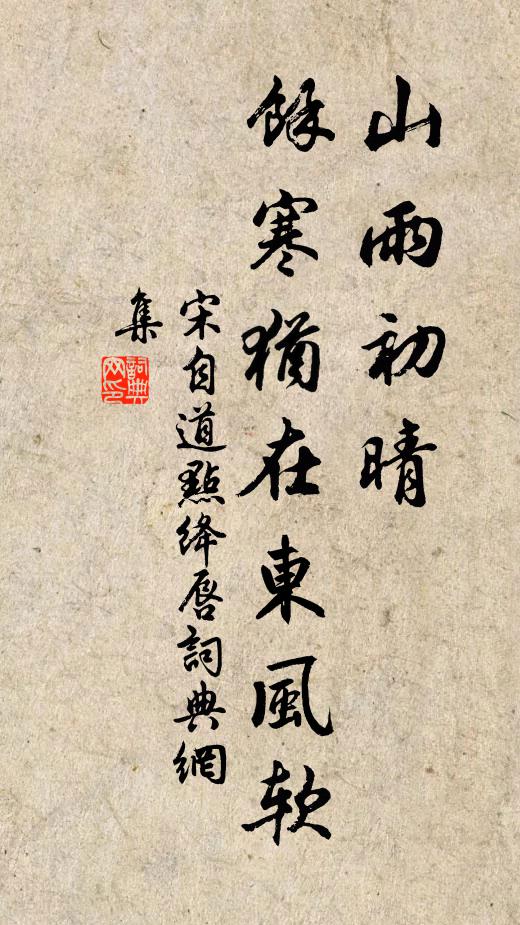 山雨初晴
餘寒猶在東風软
宋自道點绛唇詞典網
集
詞典網印